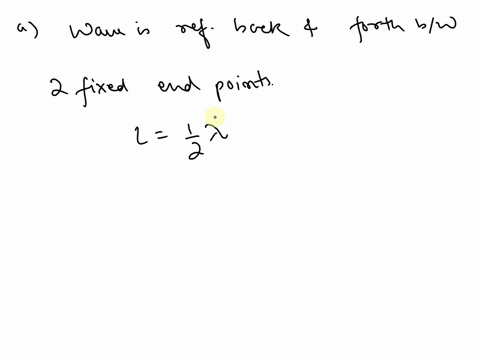 a) Wave is ref. back & forth b/w
2 fixed end points.
L = 1/2 λ